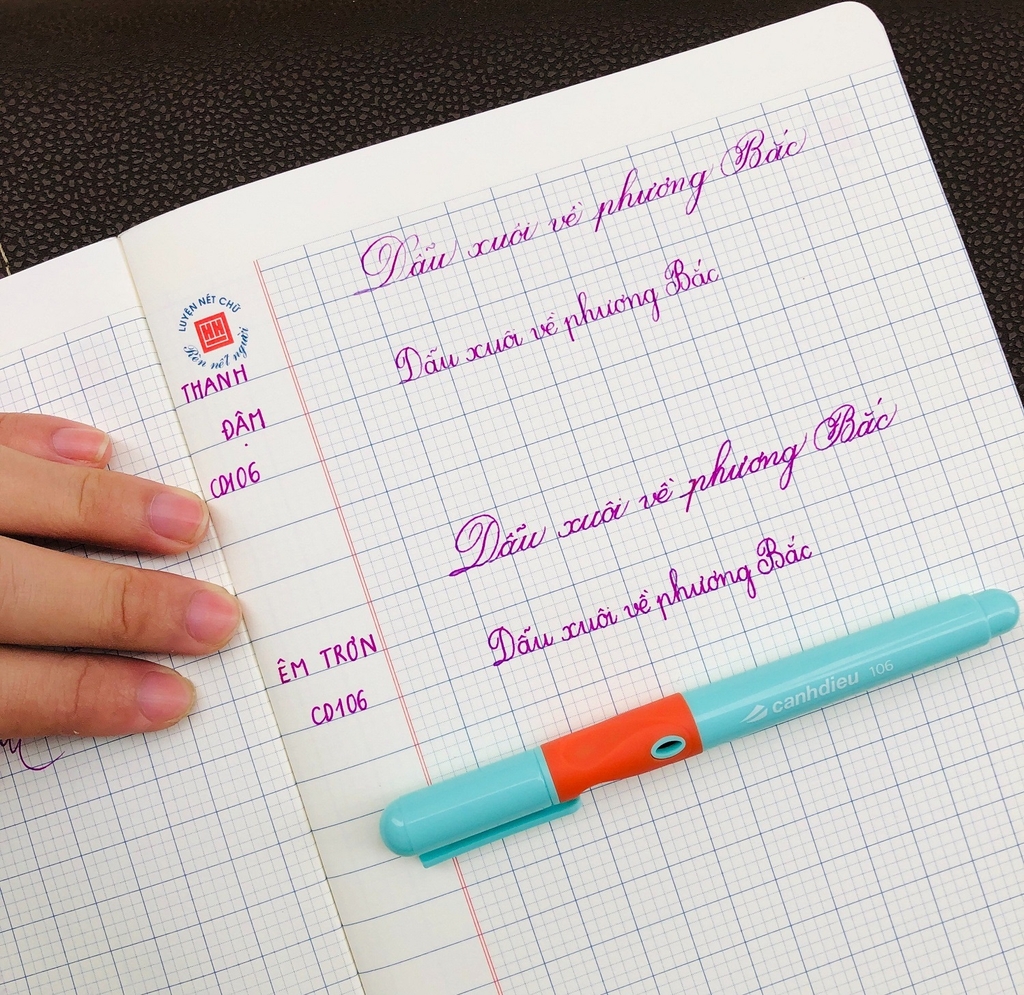 Dẫu xuôi về phương Bắc
Dẫu xuôi về phương Bắc
LUYỆN NÉT CHỮ
HN
Rèn nết người
THANH
ĐẬM
CD106
Dẫu xuôi về phương Bắc
Dẫu xuôi về phương Bắc
ÊM TRƠN
CD106
canhdieu 106